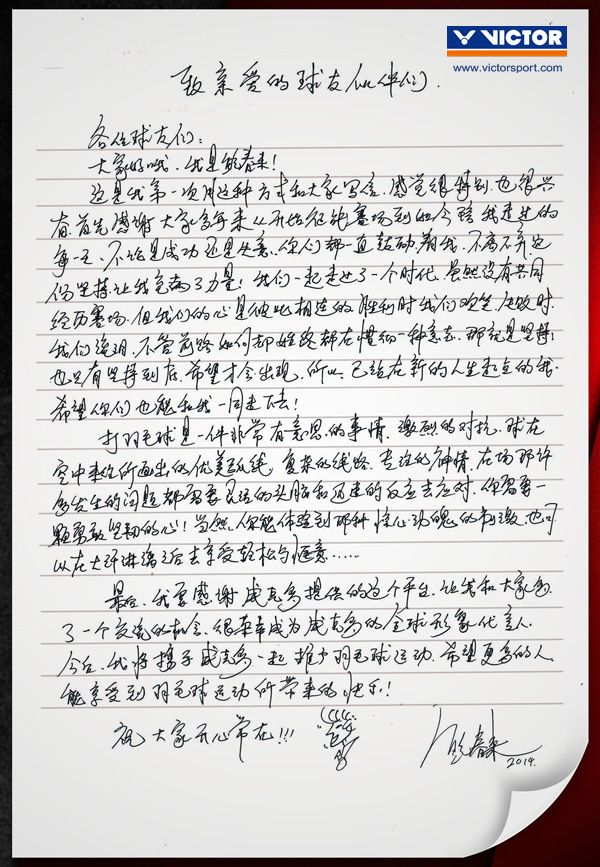 VICTOR
www.victorsport.com
致亲爱的球友伙伴们.
各位球友们:
大家好哦、我是鲍春来!
这是我第一次用这种方式和大家写信、感觉很特别、也很兴
奋、首先感谢大家多年来从开始征战赛场到如今陪我走过的
每一天、不论是成功还是失意、你们都一直鼓励着我、不离不弃这
份坚持、让我充满了力量! 我们一起走过了一个时代、虽然没有共同
经历赛场、但我们的心是彼此相连的、胜利时我们欢笑、失败时
我们流泪、不管前路如何却始终都在惯彻一种意志、那就是坚持!
也只有坚持到底、希望才会出现、所以、已站在新的人生起点的我、
希望你们也能和我一同走下去!
打羽毛球是一件非常有意思的事情、激烈的对抗、球在
空中来往所画出的优美弧线、复杂的线路、专注的神情、在场那许
多发生的问题都需要灵活的头脑和迅速的反应去应对、你需要一
颗勇敢坚韧的心! 当然、你能体验到那种惊心动魄的刺激、也可
以在大汗淋漓之后去享受轻松与惬意……
最后、我要感谢威克多提供的这个平台、让我和大家多
了一个交流的机会、很荣幸成为威克多的全球形象代言人、
今后、我将携手威克多一起推广羽毛球运动、希望更多的人
能享受到羽毛球运动所带来的快乐!
祝大家开心常在!!!
鲍春来
2014.